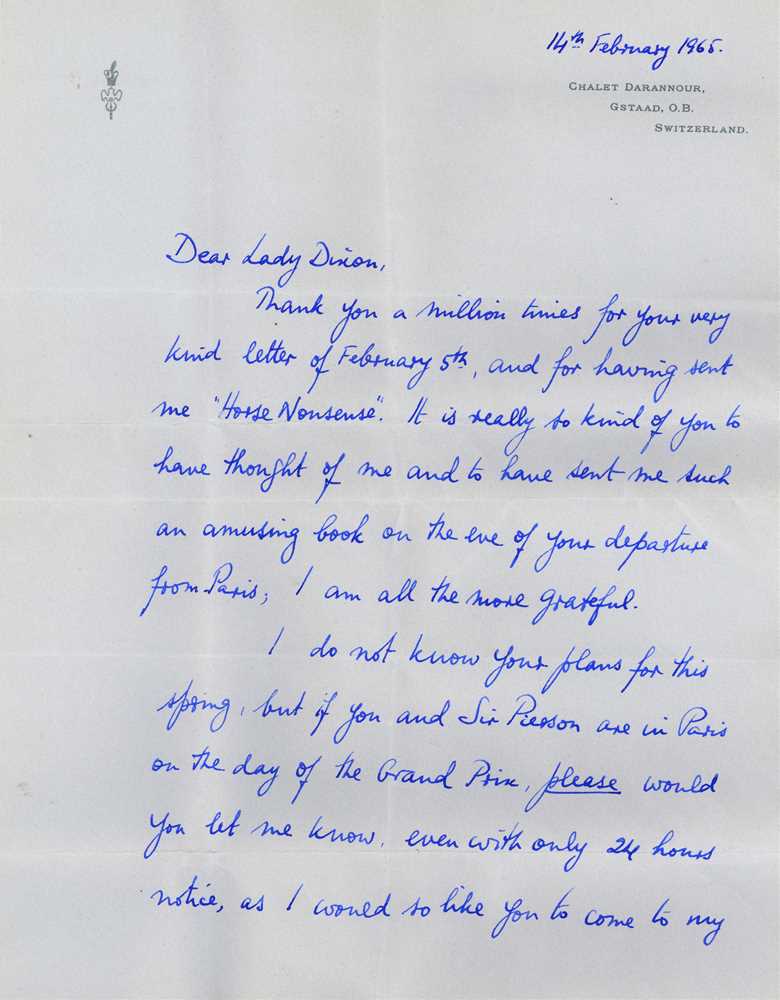 14th February 1965.
CHALET DARANNOUR,
GSTAAD, O.B.
SWITZERLAND.
Dear Lady Dixon,
Thank you a million times for your very
kind letter of February 5th, and for having sent
me "Horse Nonsense". It is really so kind of you to
have thought of me and to have sent me such
an amusing book on the eve of your departure
from Paris; I am all the more grateful.
I do not know your plans for this
spring, but if you and Sir Pierson are in Paris
on the day of the Grand Prix, please would
you let me know, even with only 24 hours
notice, as I would so like you to come to my